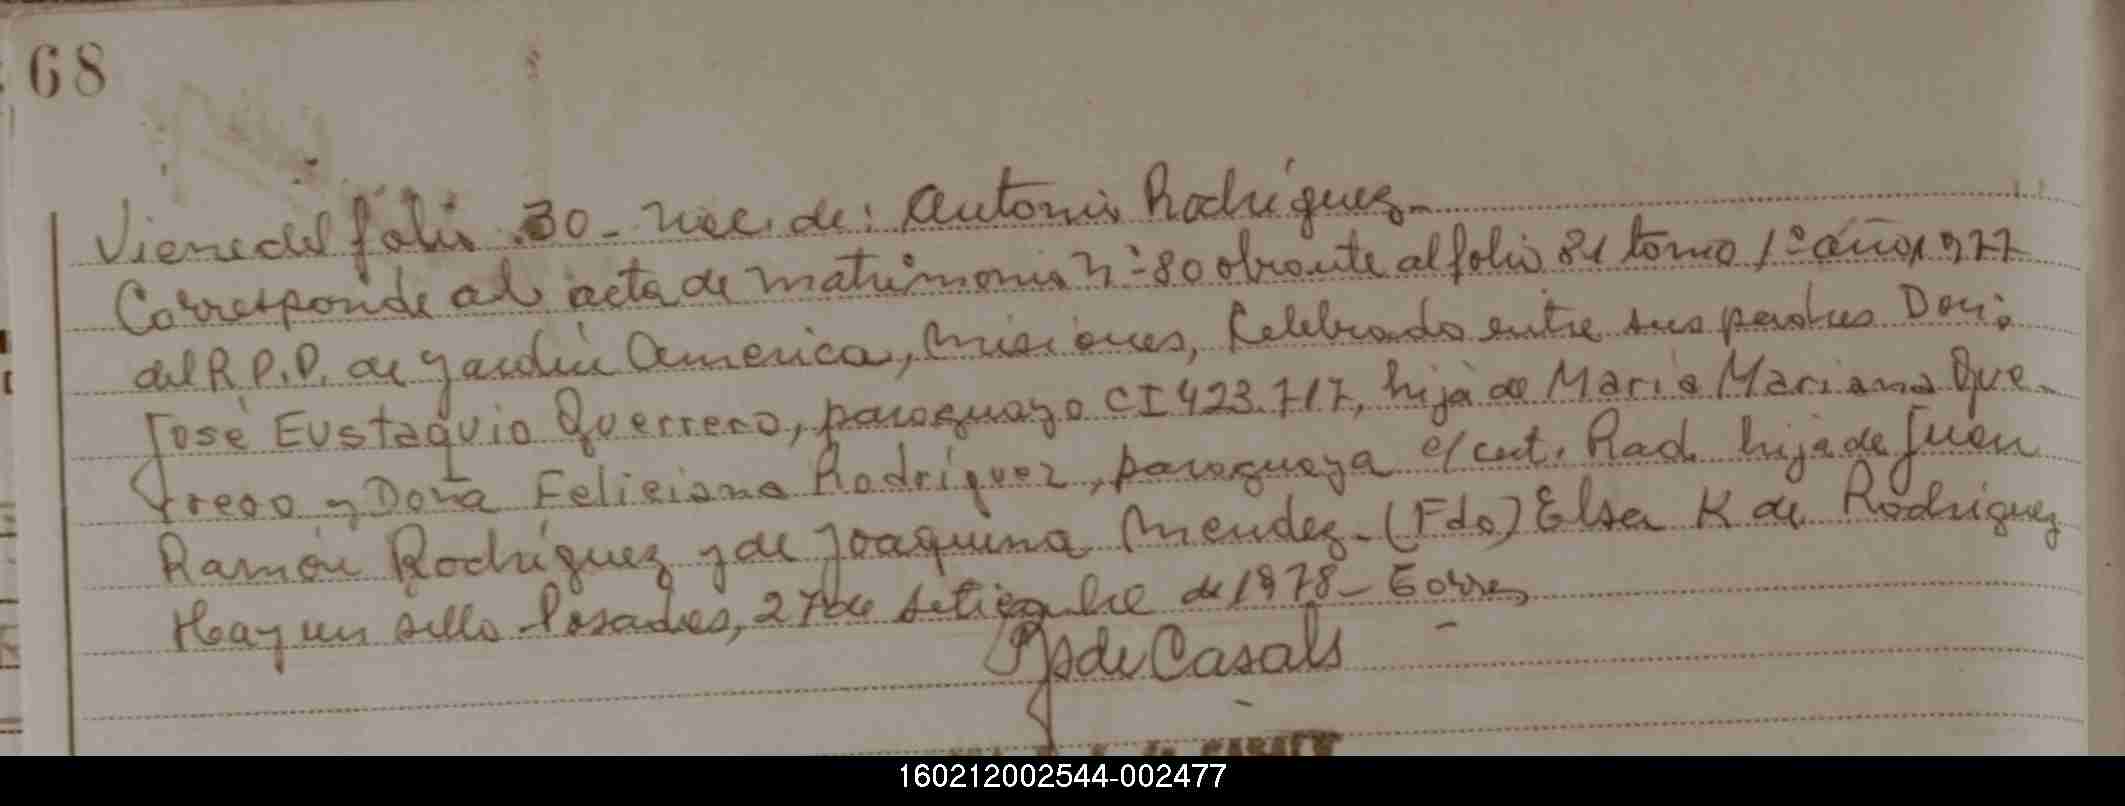 68
Viene del folio 30 - Nac. de: Antonio Rodríguez -
Corresponde al acta de matrimonio Nº 80 obrante al folio 81 tomo 1º año 1977
del R.P.P. de Jardín América, Misiones, Celebrado entre sus padres Don:
José Eustaquio Querrero, paraguayo CI 423.717, hijo de Maria Mariana Que
rrero y Doña Feliciana Rodríguez, paraguaya c/cert. Rad. hija de Juan
Ramón Rodríguez y de Joaquina Mendez - (Fdo) Elsa K de Rodríguez
Hay un sello Posadas, 27 de setiembre de 1978 - Torres
de Casals
de CASALS
160212002544-002477